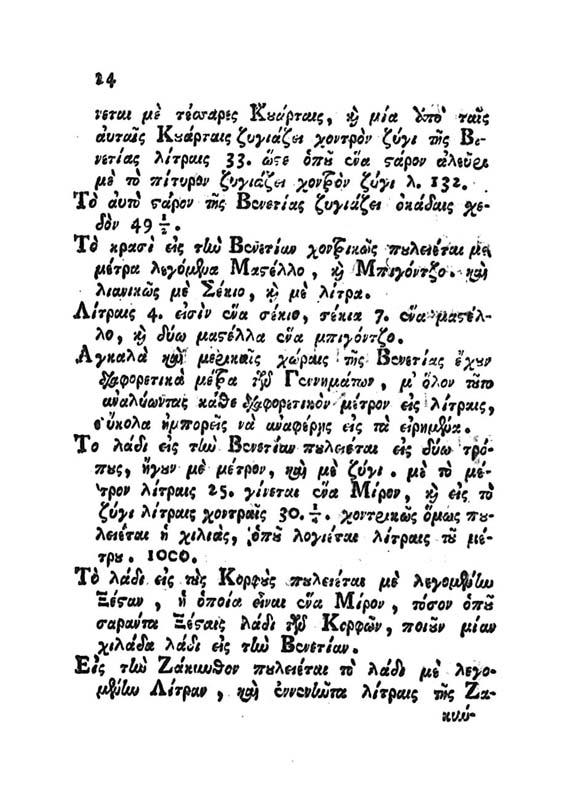 24
νεται μὲ τέσσαρες Κυάρταις, ϗ μία ἀπὸ ταῖς
αὐταῖς Κυάρταις ζυγιάζει χοντρὸν ζύγι τῆς Βε-
νετίας λίτραις 33. ὥστε ὁποῦ ἕνα στάρον ἀλεῦρι
μὲ τὸ πίτυρον ζυγιάζει χονδρὸν ζύγι λ. 132.
Τὸ αὐτὸ στάρον τῆς Βενετίας ζυγιάζει ὀκάδαις χε-
δὸν 49 ½.
Τὸ κρασὶ εἰς τὴν Βενετίαν χονδρικῶς πουλειέται με
μέτρα λεγόμενα Μαστέλλο, ϗ Μπιγόντζο. καὶ
λιανικῶς μὲ Σέκιο, ϗ μὲ λίτρα.
Λίτραις 4. εἰσὶν ἕνα σέκιο, σέκια 7. ἕνα μαστέλ-
λο, ϗ δύω μαστέλλα ἕνα μπιγόντζο.
Ἀγκαλὰ καὶ μερικαῖς χώραις τῆς Βενετίας ἔχουν
διαφορετικὰ μέτρα τῶν Γεννημάτων, μ' ὅλον τοῦτο
ἀναλύωντας κάθε διαφορετικὸν μέτρον εἰς λίτραις,
εὔκολα ἠμπορεῖς νὰ ἀναφέρῃς εἰς τὰ εἰρημένα.
Το λάδι εἰς τὴν Βενετίαν πουλειέται εἰς δύω τρό-
πους, ἤγουν μὲ μέτρον, καὶ μὲ ζύγι. μὲ τὸ μέ-
τρον λίτραις 25. γίνεται ἕνα Μίρον, ϗ εἰς τὸ
ζύγι λίτραις χοντραῖς 30. ¼. χοντρικῶς ὅμως που-
λειέται ἡ χιλιὰς, ὁποῦ λογιέται λίτραις τοῦ μέ-
τρου. 1000.
Τὸ λάδι εἰς τοὺς Κορφοὺς πουλειέται μὲ λεγομένην
Ξέσταν, ἡ ὁποία εἶναι ἕνα Μίρον, τόσον ὁποῦ
σαραντα Ξέσταις λάδι τῶν Κορφῶν, ποιοῦν μίαν
χιλάδα λάδι εἰς τὴν Βενετίαν.
Εἰς τὴν Ζάκυνθον πουλειέται τὸ λάδι μὲ λεγο-
μένην Λίτραν, καὶ ἐννενῆντα λίτραις τῆς Ζα-
κυν-